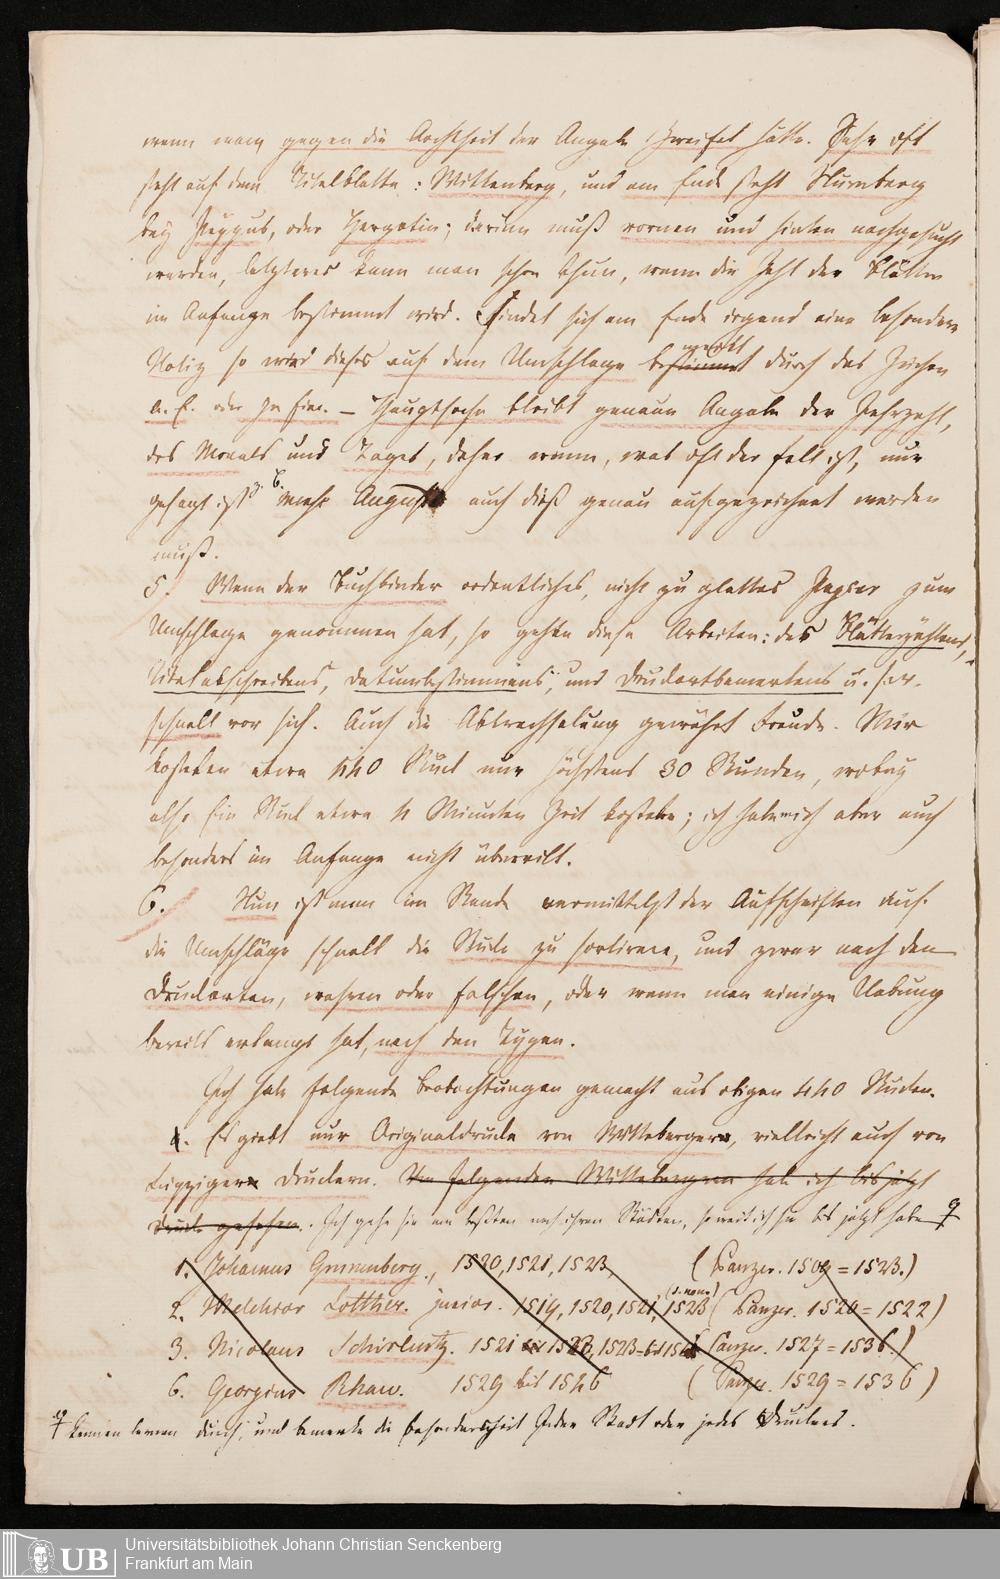 wenn man gegen die Aechtheit der Angabe Zweifel hätte. Sehr oft
steht auf dem Titelblatte: Wittenberg, und am Ende steht Nürnberg
bey Peypus, oder Hergotin; darum muß vornen und hinten nachgesucht
werden, letzteres kann man schon thun, wenn die Zahl der Blätter
im Anfange bestimmt wird. Findet sich am Ende irgend eine besondere
Notiz so wird dieses auf dem Umschlage bestimmt durch das Zeichen
a. E. oder In fine. – Hauptsache bleibt genaue Angabe der Jahrzahl,
des Monats und Tages, daher wenn, was oft der Fall ist, nur
gesagt ist z. B. August auch dieß genau aufgezeichnet werden
muß.
5. Wenn der Buchbinder ordentliches, nicht zu glattes Papier zum
Umschlage genommen hat, so gehen diese Arbeiten: des Blätterzählens,
Titelabschreibens, Datumbestimmens, und Druckortbemerkens u. s. w.
schnell vor sich. Auch die Abwechselung gewährt Freude. Mir
kosteten etwa 440 Stück nur höchstens 30 Stunden, wobey
also Ein Stück etwa 4 Minuten Zeit kostete; ich habe mich aber auch
besonders im Anfange nicht übereilt.
6. Nun ist man im Stande vermittelst der Aufschriften auf
die Umschläge schnell die Stücke zu sortiren, und zwar nach den
Druckorten, wahren oder falschen, oder wenn man einige Uebung
bereits erlangt hat, nach den Typen.
Ich habe folgende Beobachtungen gemacht aus obigen 440 Stücken.
1. Es giebt nur Originaldrucke von Wittebergern, vielleicht auch von
Leipziger Druckern. Von folgenden Wittebergern hab ich bis jetzt
Drucke gesehen. Ich gehe sie am besten nach ihren Städten, soweit ich sie bis jetzt habe
1. Johannes Grunenberg., 1520, 1521, 1523, (Panzer. 1509 = 1523.)
2. Melchior Lotther. junior. 1519, 1520, 1521, 1523 (Panzer. 1520 = 1522)
3. Nicolaus Schirlentz. 1521 1523 (Panzer. 1527 = 1536.)
6. Georgius Rhaw. 1529 bis 1546 (Panzer. 1529 = 1536)
kennen lernen durch, und bemerke die Besonderheit jeder Stadt oder jedes Druckers.
Universitätsbibliothek Johann Christian Senckenberg
UB Frankfurt am Main